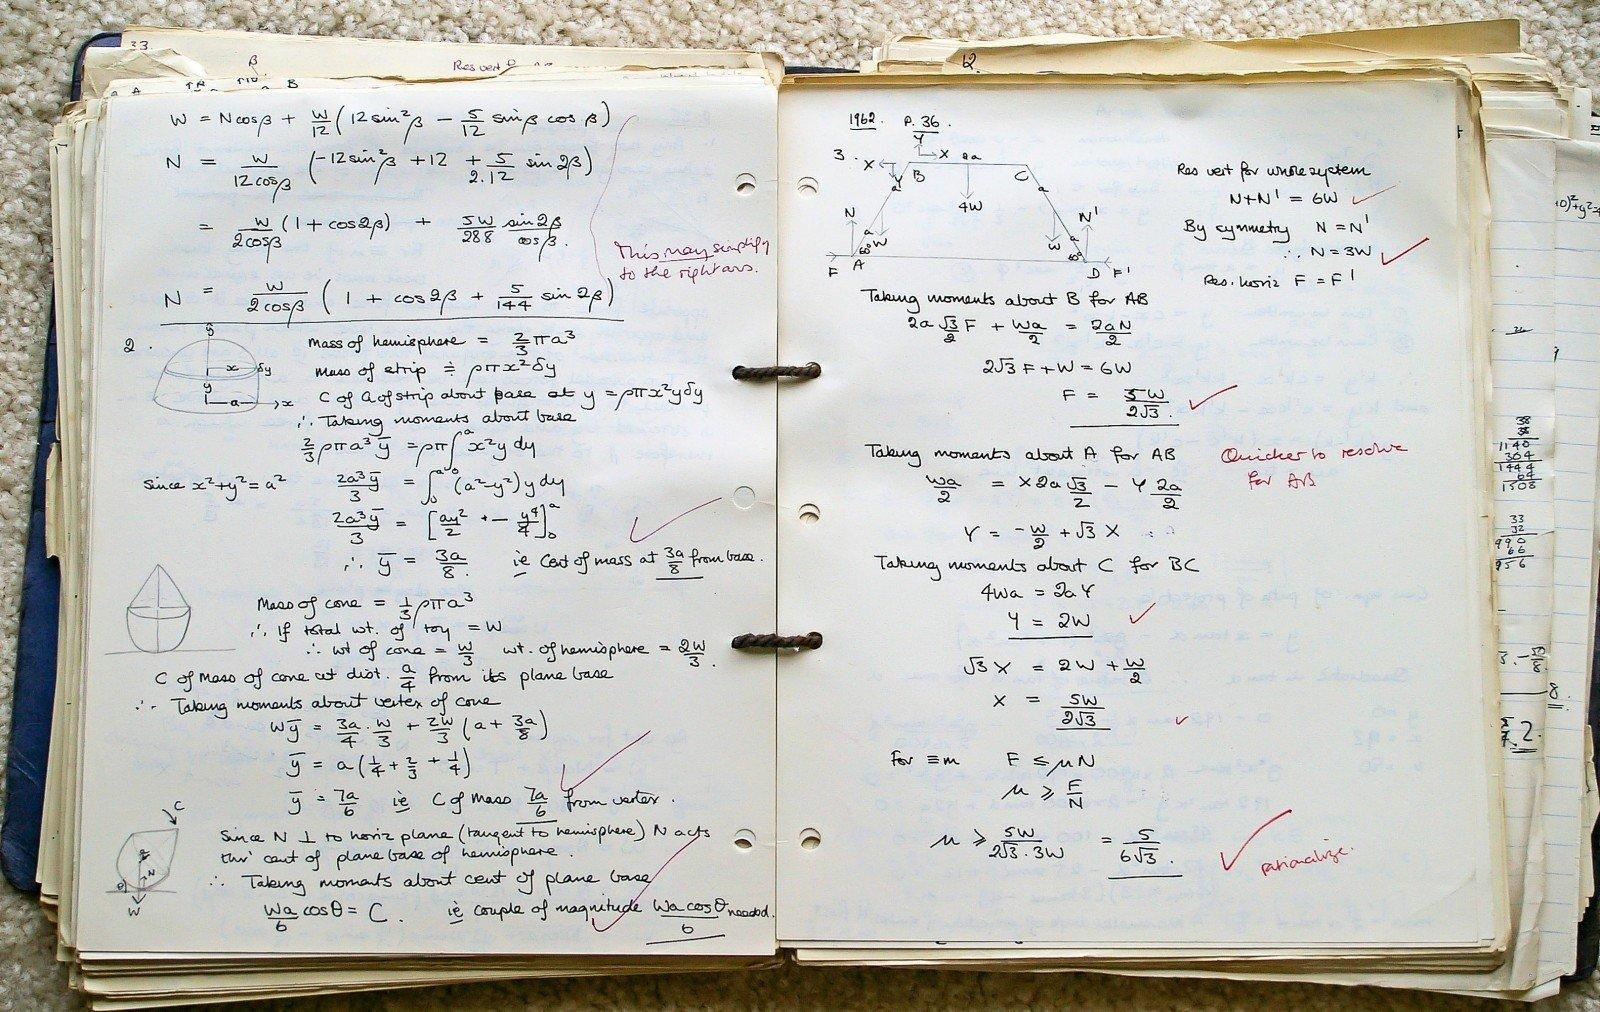 33.
β
Res vert
B
W = N cosβ + W/12 (12 sin²β − 5/12 sinβ cos β)
N = W/12cosβ (−12 sin²β + 12 + 5/2.12 sin 2β)
= W/2cosβ (1 + cos2β) + 5W/288 sin2β/cosβ.
This may simplify
to the right ans.
N = W/2cosβ (1 + cos2β + 5/144 sin 2β)
2.
y
x δy
y
a x
Mass of hemisphere = 2/3 π a³
Mass of strip ≑ ρπx²δy
C of G of strip about base at y = ρπx²yδy
∴ Taking moments about base
2/3 ρπa³ȳ = ρπ∫₀ᵃ x²y dy
since x²+y² = a² 2a³ȳ/3 = ∫₀ᵃ (a²−y²) y dy
2a³ȳ/3 = [ay²/2 − y⁴/4]₀ᵃ
∴ ȳ = 3a/8. ie Cent of mass at 3a/8 from base.
Mass of cone = 1/3 ρπa³
∴ If total wt. of toy = W
∴ wt of cone = W/3 wt. of hemisphere = 2W/3.
C of Mass of cone at dist. a/4 from its plane base
∴ Taking moments about vertex of cone
Wȳ = 3a/4 · W/3 + 2W/3 (a + 3a/8)
ȳ = a(1/4 + 2/3 + 1/4)
ȳ = 7a/6 ie C of Mass 7a/6 from vertex.
C
N
W
Since N ⊥ to horiz plane (tangent to hemisphere) N acts
thr' cent of plane base of hemisphere.
∴ Taking moments about cent of plane base
Wa/6 cosθ = C. ie couple of magnitude Wa cosθ/6 needed.
12.
1962. P. 36.
3.
Y
X X 2a
B C
Y a a
4W
N N'
a W W a
60° 60°
F A D F'
Res vert for whole system
N+N' = 6W
By symmetry N = N'
∴ N = 3W
Res. horiz F = F'
Taking moments about B for AB
2a √3/2 F + Wa/2 = 2aN/2
2√3 F + W = 6W
F = 5W/2√3.
Taking moments about A for AB
Quicker to resolve
for AB
Wa/2 = X 2a √3/2 − Y 2a/2
Y = −W/2 + √3 X
Taking moments about C for BC
4Wa = 2aY
Y = 2W
√3 X = 2W + W/2
X = 5W/2√3
For ≡m F ≤ μN
μ ≥ F/N
μ ≥ 5W/2√3·3W = 5/6√3.
rationalize.
38
38
1140
304
1444
64
1508
33
32
990
66
956
8.
2.